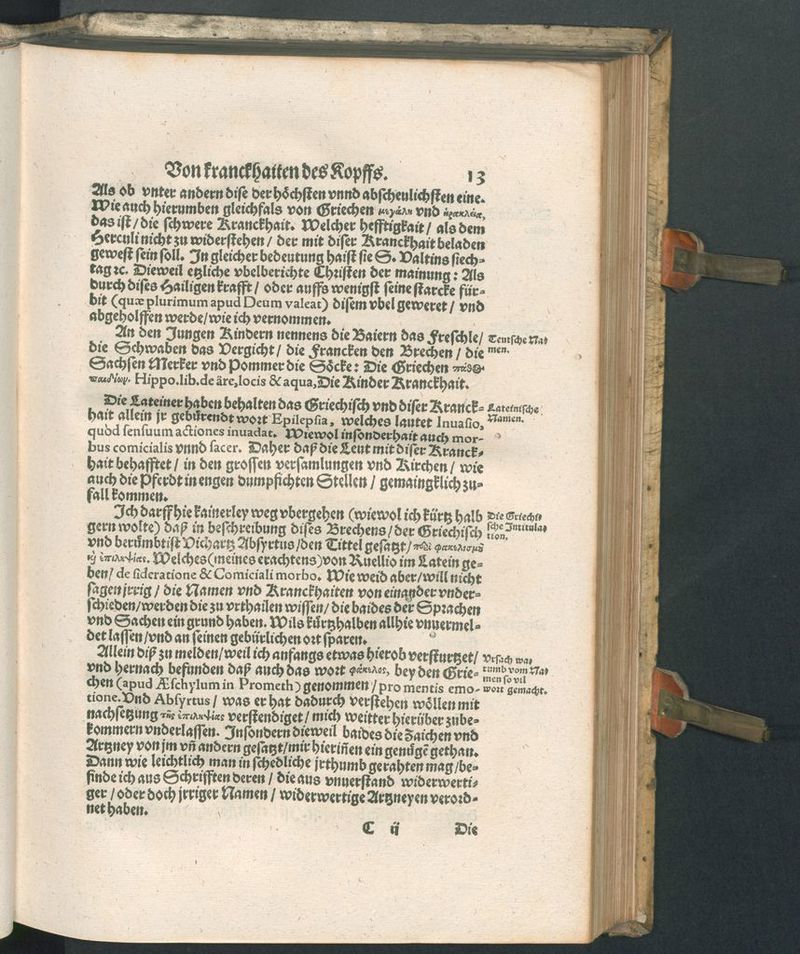 Von kranckhaiten des Kopffs. 13
Als ob vnter andern dise der höchsten vnnd abscheulichsten eine.
Wie auch hierumben gleichfals von Griechen μεγάλη vnd ἡρακλεία,
das ist / die schwere Kranckhait. Welcher hefftigkait / als dem
Herculi nicht zu widerstehen / der mit diser Kranckhait beladen
gewest sein soll. In gleicher bedeutung haist sie S. Valtins siech-
tag ꝛc. Dieweil etzliche vbelberichte Christen der mainung: Als
durch dises Hailigen krafft / oder auffs wenigst seine starcke für-
bit (quæ plurimum apud Deum valeat) disem vbel geweret / vnd
abgeholffen werde / wie ich vernommen.
An den Jungen Kindern nennens die Baiern das Freschle /
die Schwaben das Vergicht / die Francken den Brechen / die
Sachsen Merker vnd Pommer die Söcke: Die Griechen πάθος
παιδίων. Hippo. lib. de äre, locis & aqua, Die Kinder Kranckhait.
Teutsche Na-
men.
Die Lateiner haben behalten das Griechisch vnd diser Kranck-
hait allein jr gebürendt wort Epilepsia, welches lautet Inuasio,
quòd sensuum actiones inuadat. Wiewol insonderhait auch mor-
bus comicialis vnnd sacer. Daher daß die Leut mit diser Kranck-
hait behafftet / in den grossen versamlungen vnd Kirchen / wie
auch die Pferdt in engen dumpfichten Stellen / gemaingklich zu-
fall kommen.
Lateinische
Namen.
Ich darff hie kainerley weg vbergehen (wiewol ich kürtz halb
gern wolte) daß in beschreibung dises Brechens / der Griechisch
vnd berümbtist Vichartz Absyrtus / den Tittel gesatzt / περὶ φακελισμοῦ
ἢ ἐπιληψίας. Welches (meines erachtens) von Ruellio im Latein ge-
ben / de sideratione & Comiciali morbo. Wie weid aber / will nicht
sagen jrrig / die Namen vnd Kranckhaiten von einander vnder-
schieden / werden die zu vrthailen wissen / die baides der Sprachen
vnd Sachen ein grund haben. Wils kürtzhalben allhie vnuermel-
det lassen / vnd an seinen gebürlichen ort sparen.
Die Griechi-
sche Intitula-
tion.
Allein diß zu melden / weil ich anfangs etwas hierob versturtzet /
vnd hernach befunden daß auch das wort φάκελος, bey den Grie-
chen (apud Æschylum in Prometh) genommen / pro mentis emo-
tione. Vnd Absyrtus / was er hat dadurch verstehen wöllen mit
nachsetzung τῆς ἐπιληψίας verstendiget / mich weitter hierüber zube-
kommern vnderlassen. Insondern dieweil baides die Zaichen vnd
Artzney von jm vñ andern gesatzt / mir hieriñen ein genügẽ gethan.
Dann wie leichtlich man in schedliche jrthumb gerahten mag / be-
finde ich aus Schrifften deren / die aus vnuerstand widerwerti-
ger / oder doch jrriger Namen / widerwertige Artzneyen verord-
net haben.
Vrsach wa-
rumb vom Na-
men so vil
wort gemacht.
C ij Die